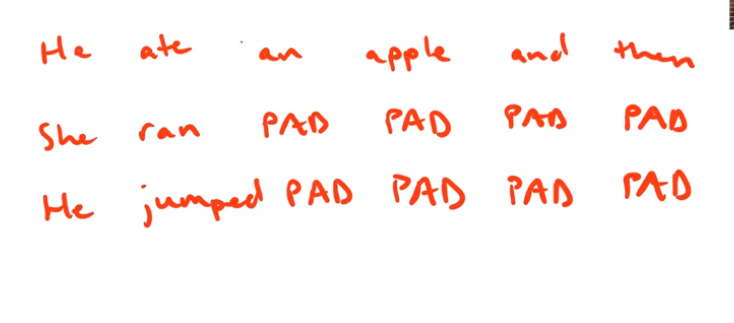 He ate an apple and then
She ran PAD PAD PAD PAD
He jumped PAD PAD PAD PAD